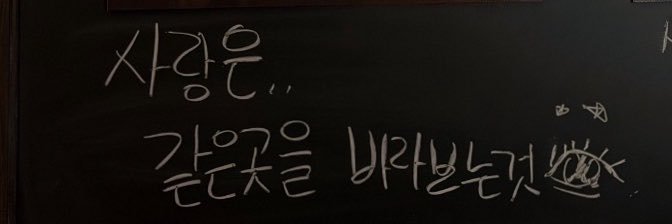 사랑은..
같은곳을 바라보는것